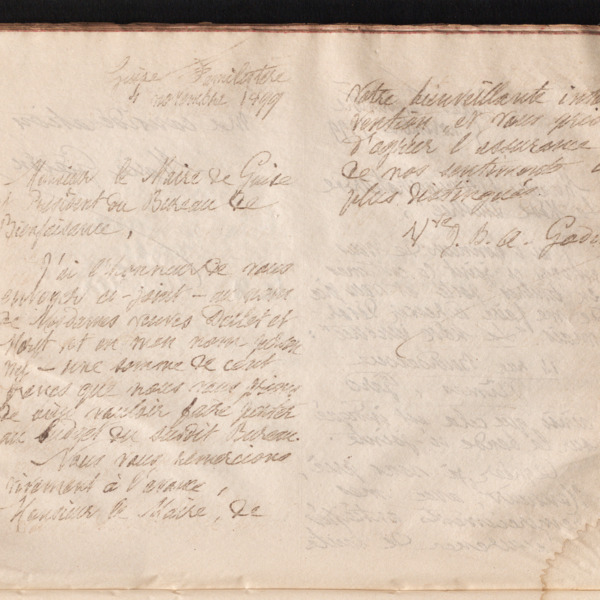 Guise Familistère
4 novembre 1899
Monsieur le Maire de Guise
Président du Bureau de
Bienfaisance,
J'ai l'honneur de vous
envoyer ci-joint - au nom
de Mesdames veuves Dallet et
et en mon nom
- une somme de cent
francs que nous vous prions
de vouloir faire porter
au budget du susdit Bureau.
Nous vous remercions
vivement à l'avance,
Monsieur le Maire, de
votre bienveillante inter
vention et vous prions
d'agréer l'assurance
de nos sentiments
plus distingués.
Vve J. B. A. Godin